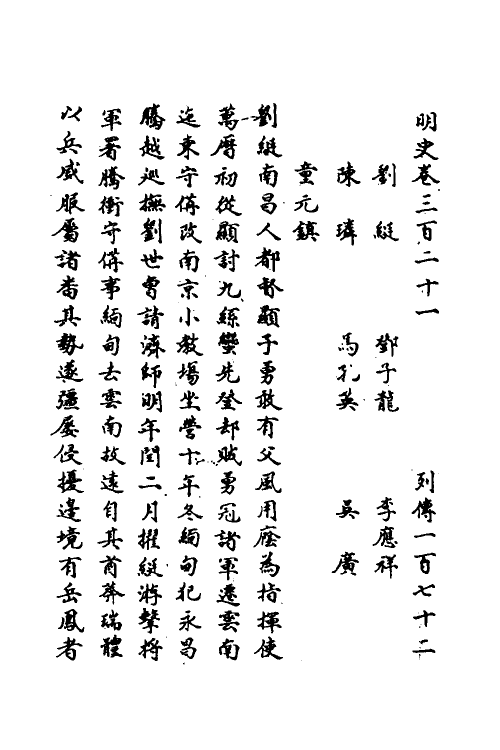 明史卷三百二十一 列傳一百七十二
劉綎 鄧子龍 李應祥
陳璘 馬孔英 吳廣
童元鎮
劉綎南昌人都督顯子勇敢有父風用廕為指揮使
萬曆初從顯討九絲蠻先登却賊勇冠諸軍遷雲南
迤東守備改南京小教場坐營十年冬緬甸犯永昌
騰越巡撫劉世曾請濟師明年閏二月擢綎游擊將
軍署騰衝守備事緬甸去雲南故遠自其酋莽瑞體
以兵威服屬諸番其勢遂彊屡侵擾邊境有岳鳳者